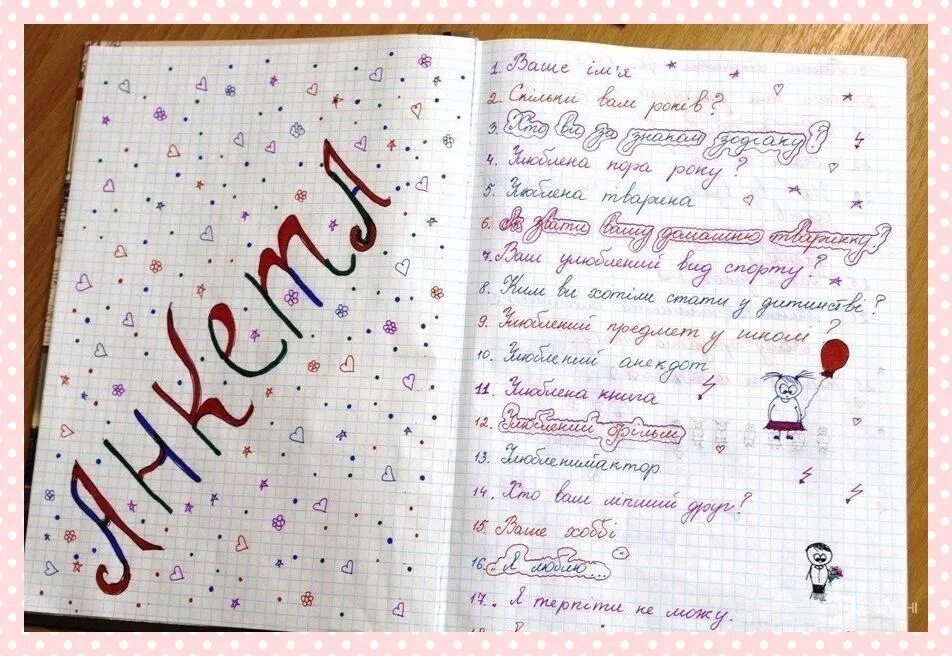 Анкета
1. Ваше ім'я
2. Скільки вам років?
3. Хто ви за знаком зодіаку?
4. Улюблена пора року?
5. Улюблена тварина
6. Як звати вашу домашню тваринку?
7. Ваш улюблений вид спорту?
8. Ким ви хотіли стати у дитинстві?
9. Улюблений предмет у школі?
10. Улюблений анекдот
11. Улюблена книга
12. Улюблений фільм
13. Улюблений актор
14. Хто ваш ліпший друг?
15 Ваше хоббі
16. Я люблю...
17.. Я терпіти не можу.